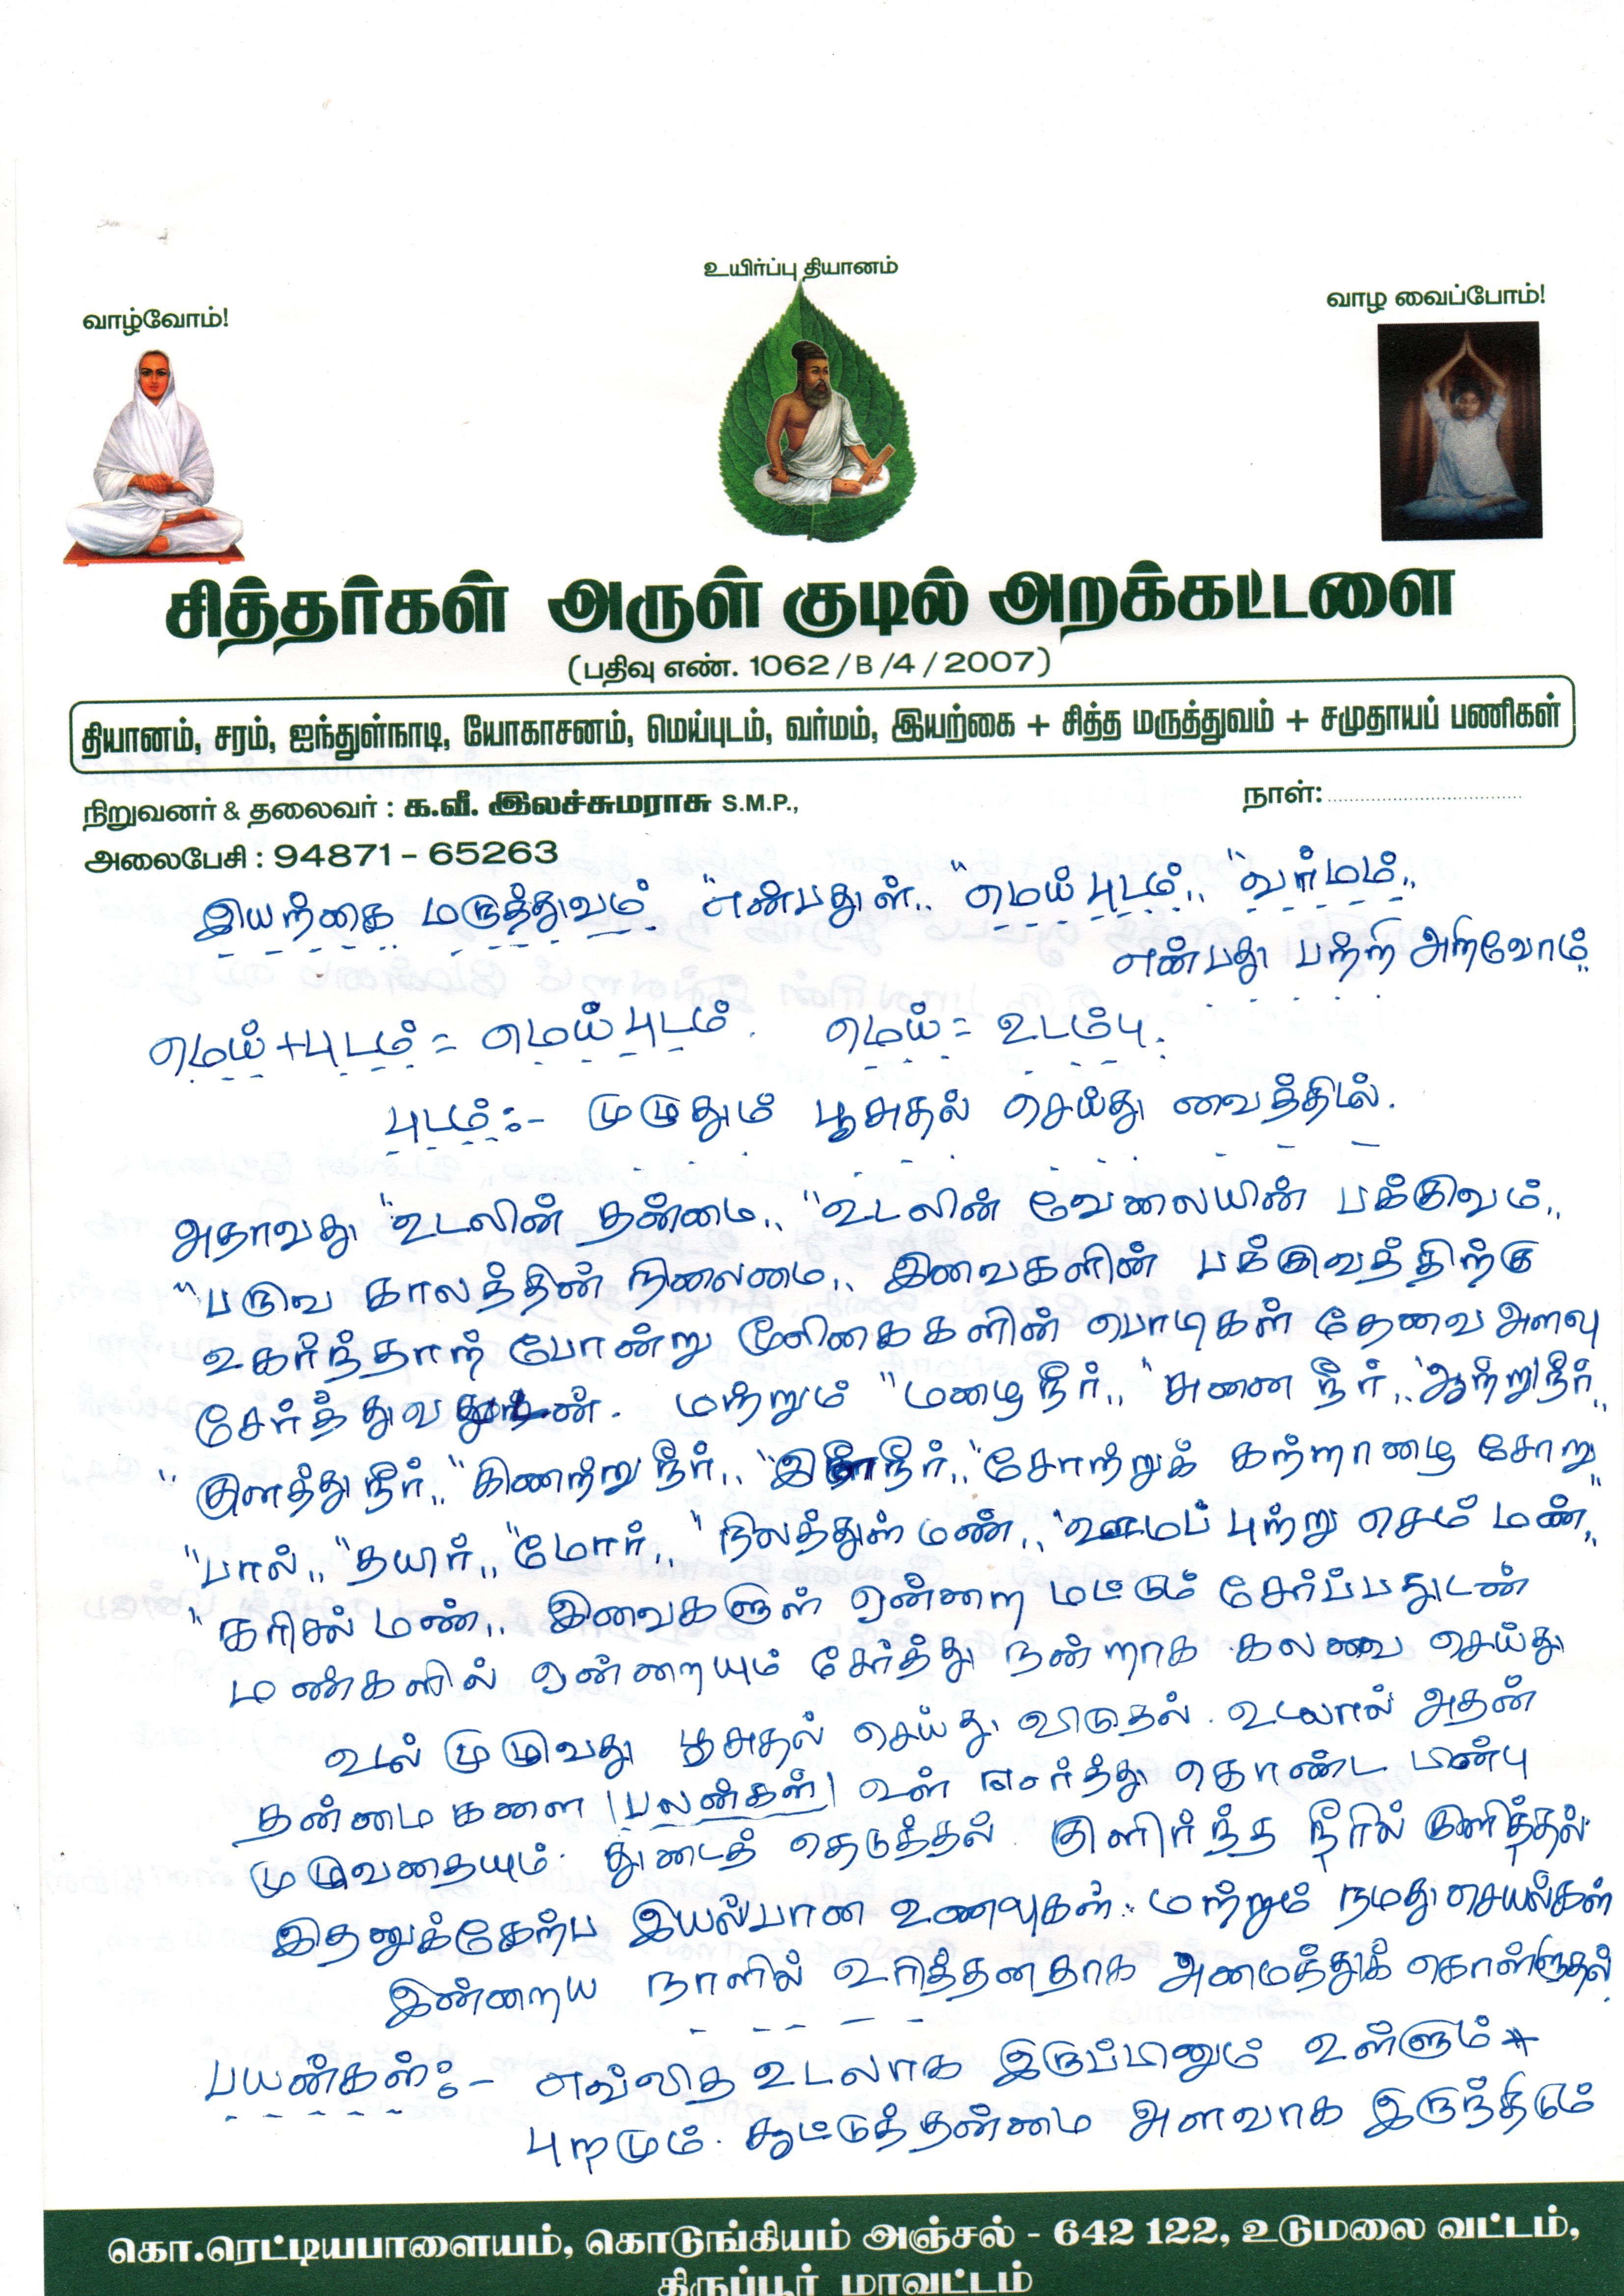 உயிர்ப்பு தியானம்
வாழ்வோம்!
வாழ வைப்போம்!
சித்தர்கள் அருள் குடில் அறக்கட்டளை
(பதிவு எண். 1062 / B / 4 / 2007)
தியானம், சரம், ஐந்துள்நாடி, யோகாசனம், மெய்புடம், வர்மம், இயற்கை + சித்த மருத்துவம் + சமுதாயப் பணிகள்
நிறுவனர் & தலைவர் : க.வீ. இலச்சுமராசு S.M.P.,
நாள்:
அலைபேசி : 94871 - 65263
இயற்கை மருத்துவம் "என்பதுள்,, "மெய் புடம்,, "வர்மம்,,
என்பது பற்றி அறிவோம்"
மெய்+புடம் = மெய் புடம். மெய் = உடம்பு.
புடம்:- முழுதும் பூசுதல் செய்து வைத்திடல்.
அதாவது "உடலின் தன்மை,, "உடலின் வேலையின் பக்குவம்,,
"பருவ காலத்தின் நிலைமை,, இவைகளின் பக்குவத்திற்கு
உகர்ந்தாற் போன்று மூலிகைகளின் பொடிகள் தேவை அளவு
சேர்த்துவதுடன். மற்றும் "மழை நீர்,, "சுனை நீர்,, "ஆற்று நீர்,,
"குளத்து நீர்,, "கிணற்று நீர்,, "இளநீர்,, "சோற்றுக் கற்றாழை சோறு"
"பால்,, "தயிர்,, "மோர்,, "நிலத்துள் மண்,, புற்று செம் மண்,,
"கரிசல் மண்,, இவைகளுள் ஒன்றை மட்டும் சேர்ப்பதுடன்
மண்களில் ஒன்றையும் சேர்த்து நன்றாக கலவை செய்து
உடல் முழுவது பூசுதல் செய்து விடுதல். உடலால் அதன்
தன்மை களை (பலன்கள்) உள் சேர்த்து கொண்ட பின்பு
முழுவதையும். துடைத் தெடுத்தல். குளிர்ந்த நீரில் குளித்தல்.
இதனுக்கேற்ப இயல்பான உணவுகள். மற்றும் நமது செயல்கள்
இன்றைய நாளில் உரித்தனதாக அமைத்துக் கொள்ளுதல்.
பயன்கள்:- எவ்வித உடலாக இருப்பினும் உள்ளும்
புறமும். கூட்டுத்தன்மை அளவாக இருந்திடும்
கொ.ரெட்டியபாளையம், கொடுங்கியம் அஞ்சல் - 642 122, உடுமலை வட்டம்,
திருப்பூர் மாவட்டம்